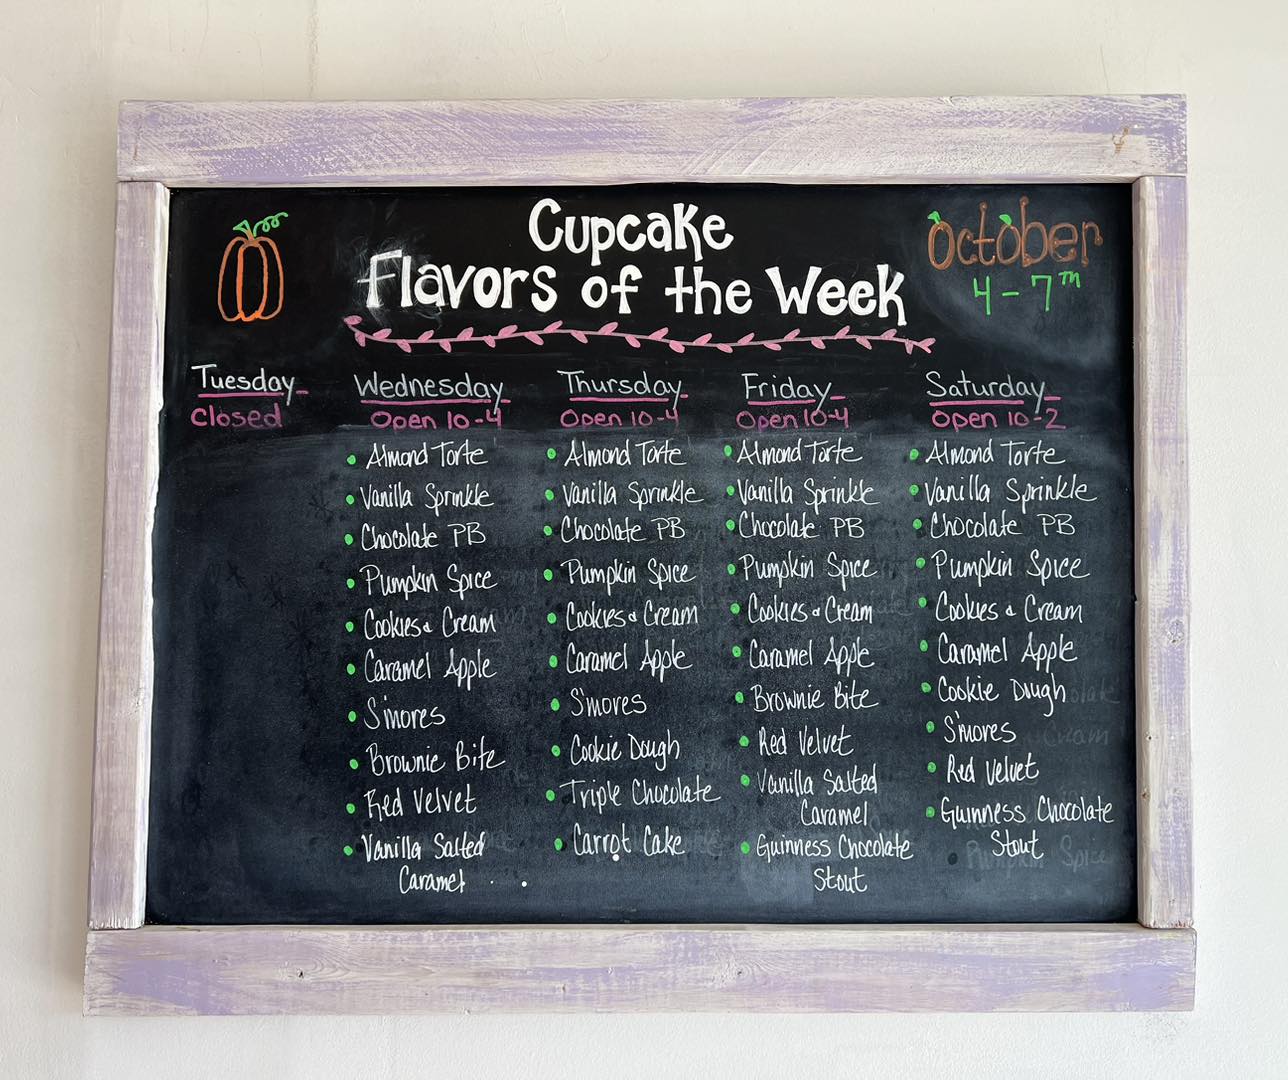 Cupcake
Flavors of the Week
October
4-7TH
Tuesday
Closed
Wednesday
Open 10-4
• Almond Torte
• Vanilla Sprinkle
• Chocolate PB
• Pumpkin Spice
• Cookies & Cream
• Caramel Apple
• S'mores
• Brownie Bite
• Red Velvet
• Vanilla Salted
Caramel
Thursday
Open 10-4
• Almond Torte
• Vanilla Sprinkle
• Chocolate PB
• Pumpkin Spice
• Cookies & Cream
• Caramel Apple
• S'mores
• Cookie Dough
• Triple Chocolate
• Carrot Cake
Friday
Open 10-4
• Almond Torte
• Vanilla Sprinkle
• Chocolate PB
• Pumpkin Spice
• Cookies & Cream
• Caramel Apple
• Brownie Bite
• Red Velvet
• Vanilla Salted
Caramel
• Guinness Chocolate
Stout
Saturday
Open 10-2
• Almond Torte
• Vanilla Sprinkle
• Chocolate PB
• Pumpkin Spice
• Cookies & Cream
• Caramel Apple
• Cookie Dough
• S'mores
• Red Velvet
• Guinness Chocolate
Stout